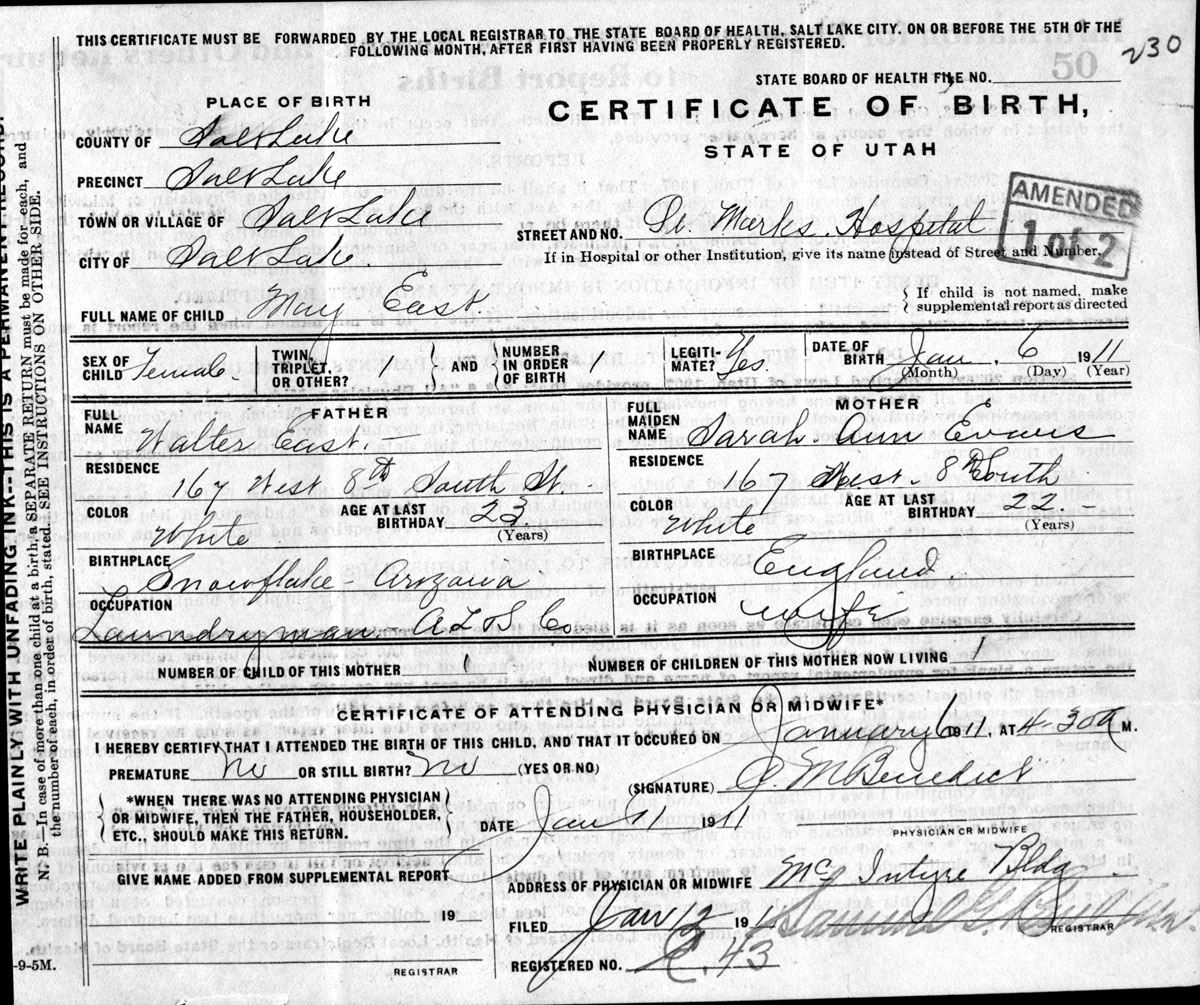 THIS CERTIFICATE MUST BE FORWARDED BY THE LOCAL REGISTRAR TO THE STATE BOARD OF HEALTH, SALT LAKE CITY. ON OR BEFORE THE 5TH OF THE
FOLLOWING MONTH, AFTER FIRST HAVING BEEN PROPERLY REGISTERED.
230
50
STATE BOARD OF HEALTH FILE NO.
PLACE OF BIRTH
CERTIFICATE OF BIRTH,
STATE OF UTAH
COUNTY OF Salt Lake
PRECINCT Salt Lake
TOWN or VILLAGE OF Salt Lake
CITY OF Salt Lake.
STREET AND NO. St. Marks Hospital
If in Hospital or other Institution, give its name instead of Street and Number.
AMENDED
1 of 2
FULL NAME OF CHILD May East.
If child is not named, make
supplemental report as directed
SEX OF CHILD Female. TWIN, TRIPLET, OR OTHER? 1 AND NUMBER IN ORDER OF BIRTH 1 LEGITI-MATE? Yes. DATE OF BIRTH Jan. 6 1911
(Month) (Day) (Year)
FATHER
FULL NAME Walter East.
RESIDENCE
167 West 8th South St.
COLOR White AGE AT LAST BIRTHDAY 23
(Years)
BIRTHPLACE
Snowflake - Arizana
OCCUPATION
Laundryman A L & S Co.
MOTHER
FULL MAIDEN NAME Sarah Ann Evans
RESIDENCE
167 West. 8th South
COLOR White AGE AT LAST BIRTHDAY 22
(Years)
BIRTHPLACE England
OCCUPATION wife
NUMBER OF CHILD OF THIS MOTHER 1 NUMBER OF CHILDREN OF THIS MOTHER NOW LIVING 1
CERTIFICATE OF ATTENDING PHYSICIAN OR MIDWIFE*
I HEREBY CERTIFY THAT I ATTENDED THE BIRTH OF THIS CHILD, AND THAT IT OCCURED ON January 6 1911, AT 4-30 a M.
PREMATURE No OR STILL BIRTH? No (YES OR NO)
(SIGNATURE) C. M. Benedict
*WHEN THERE WAS NO ATTENDING PHYSICIAN
OR MIDWIFE, THEN THE FATHER, HOUSEHOLDER,
ETC., SHOULD MAKE THIS RETURN.
DATE Jan 7 191
PHYSICIAN OR MIDWIFE
GIVE NAME ADDED FROM SUPPLEMENTAL REPORT
ADDRESS OF PHYSICIAN OR MIDWIFE McIntyre Bldg.
19
FILED Jan 12 191
REGISTRAR
REGISTERED NO. C. 43
REGISTRAR
-9-5M.
WRITE PLAINLY WITH UNFADING INK--THIS IS A PERMANENT RECORD.
N. B. In case of more than one child at a birth, a SEPARATE RETURN must be made for each, and
the number of each, in order of birth, stated. SEE INSTRUCTIONS ON OTHER SIDE.